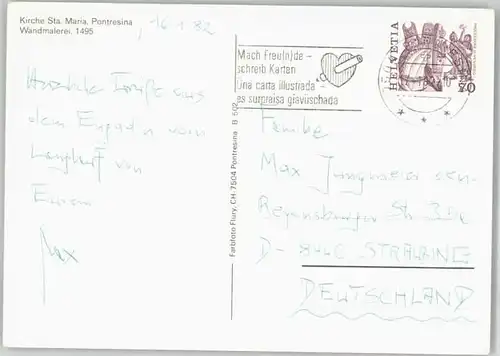 Kirche Sta. Maria, Pontresina
Wandmalerei, 1495
16.1.82
Mach Freu(n)de -
schreib Karten
Una carta illustrada -
es surpraisa giavüschada
HELVETIA
Herzliche Grüße aus
dem Engadin vom
Langlauf von
Eurem
Max
Farbfoto Flury, CH-7504 Pontresina B 502
Familie
Max Jungmeier sen.
Regensburger Str.
D- STRAUBING
DEUTSCHLAND